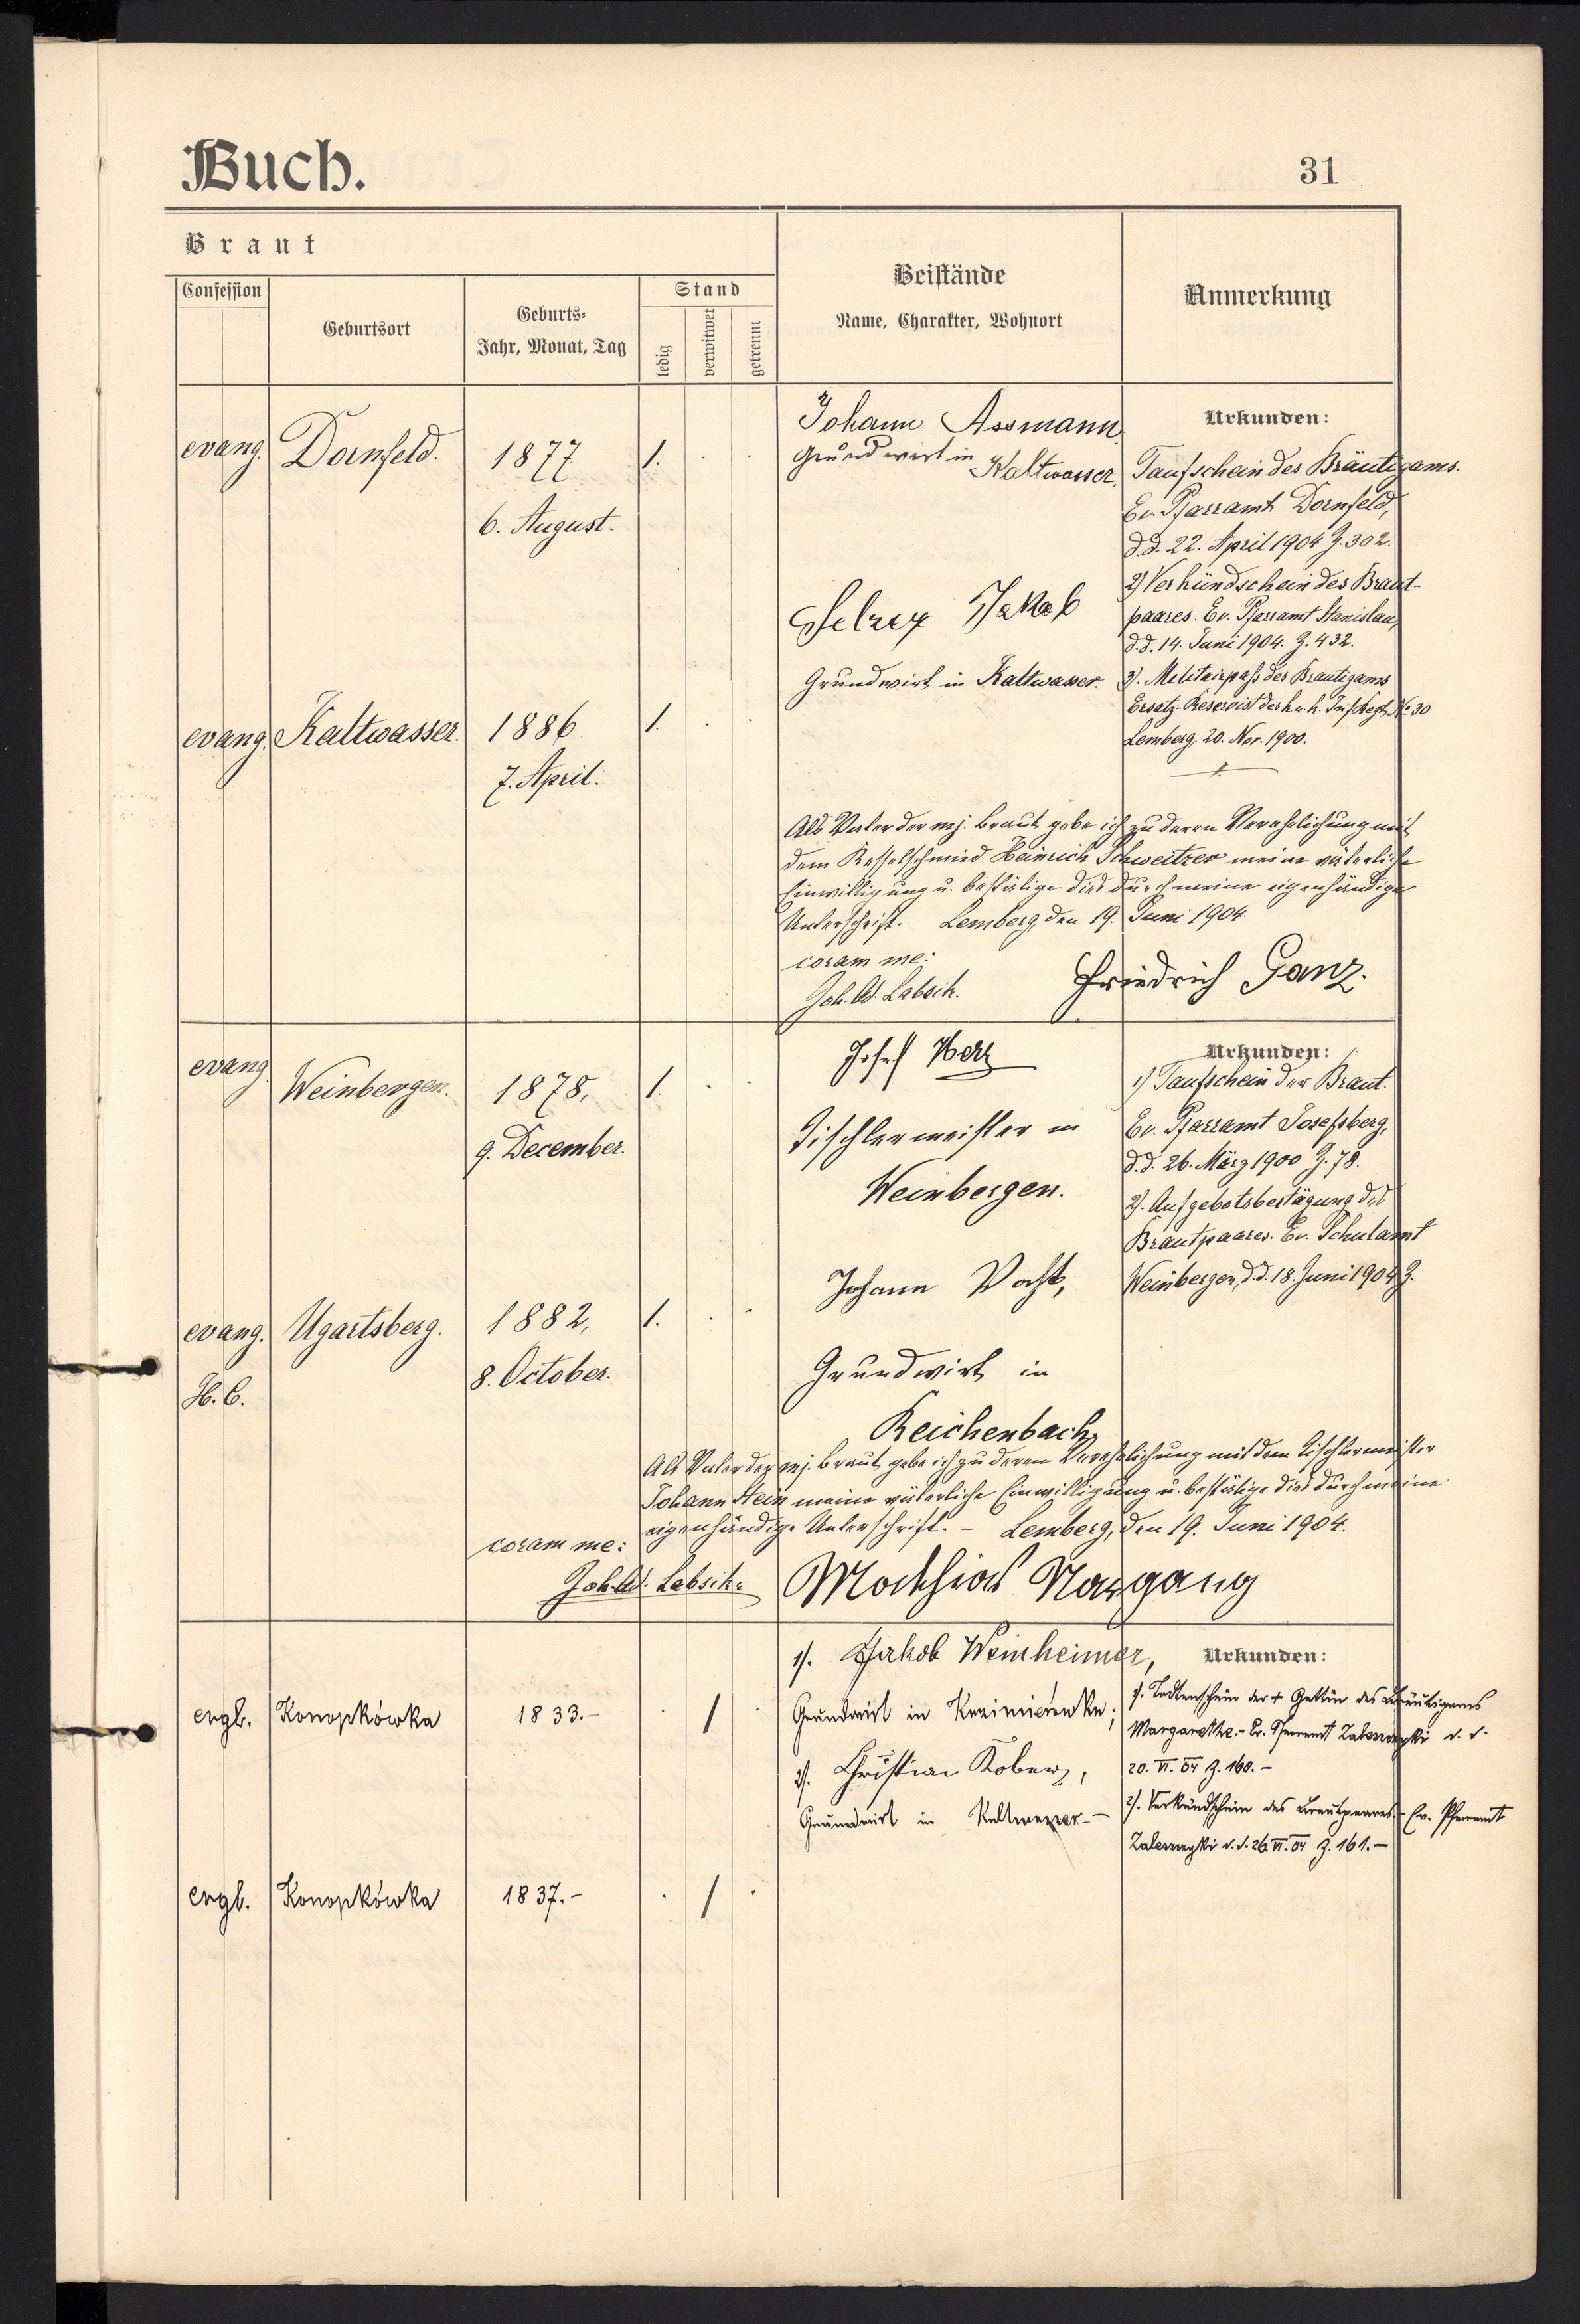 Buch.
31
Braut
Confession
Geburtsort
Geburts-
Jahr, Monat, Tag
Stand
ledig
verwitwet
getrennt
Beistände
Name, Charakter, Wohnort
Anmerkung
evang. Dornfeld. 1877 1. . .
6. August.
Johann Assmann
Grundwirt in
Kaltwasser.
Selzer Jakob
Grundwirt in Kaltwasser.
Urkunden:
Taufschein des Bräutigams.
Ev. Pfarramt Dornfeld,
d.d. 22. April 1904 Z. 302.
2) Verkündschein des Braut-
paares. Ev. Pfarramt Stanislau,
d.d. 14. Juni 1904. Z. 432.
3). Militairpaß des Brautigams
Ersatz-Reservist des k. u. k. Inf. Regt. No 30
Lemberg 20. Nov. 1900.
evang. Kaltwasser. 1886 1. . .
7. April.
Als Vater der mj. Braut gebe ich zu deren Verehelichung mit
dem Kesselschmied Heinrich Schweitzer meine väterliche
Einwilligung u. bestätige dies durch meine eigenhändige
Unterschrift. Lemberg, den 19. Juni 1904.
coram me:
Joh. Ad. Labsik.
Friedrich Ganz.
evang. Weinbergen. 1878, 1. . .
9. December.
Josef Herz
Tischlermeister in
Weinbergen.
Johann Vogt,
Grundwirt in
Reichenbach
Urkunden:
1) Taufschein der Braut.
Ev. Pfarramt Josefsberg,
d.d. 26. März 1900 Z. 78.
2). Aufgebotsbestägung des
Brautpaares. Ev. Schulamt
Weinbergen, d.d. 18. Juni 1904 Z.
evang. Ugartsberg. 1882, 1. . .
H. C.
8. October.
Als Vater der mj. Braut gebe ich zu deren Verehelichung mit dem Tischlermeister
Johann Stein meine väterliche Einwilligung u. bestätige dies durch meine
eigenhändige Unterschrift. - Lemberg, den 19. Juni 1904.
coram me:
Joh. Ad. Labsik.
Mathias Nargang
evgl. Konopkówka 1833.- . / .
1). Jakob Weinheimer,
Grundwirt in Kazimierówka;
2). Christian Koberz,
Grundwirt in Kaltwasser.-
Urkunden:
1). Todtenschein der + Gattin des Bräutigams
Margarethe.- Ev. Pfarramt Zaleszczyki d. d.
20. VI. 04 Z. 160.-
2). Verkündschein des Brautpaares.- Ev. Pfarramt
Zaleszczyki d. d. 26. VI. 04 Z. 161.-
evgl. Konopkówka 1837.- . / .